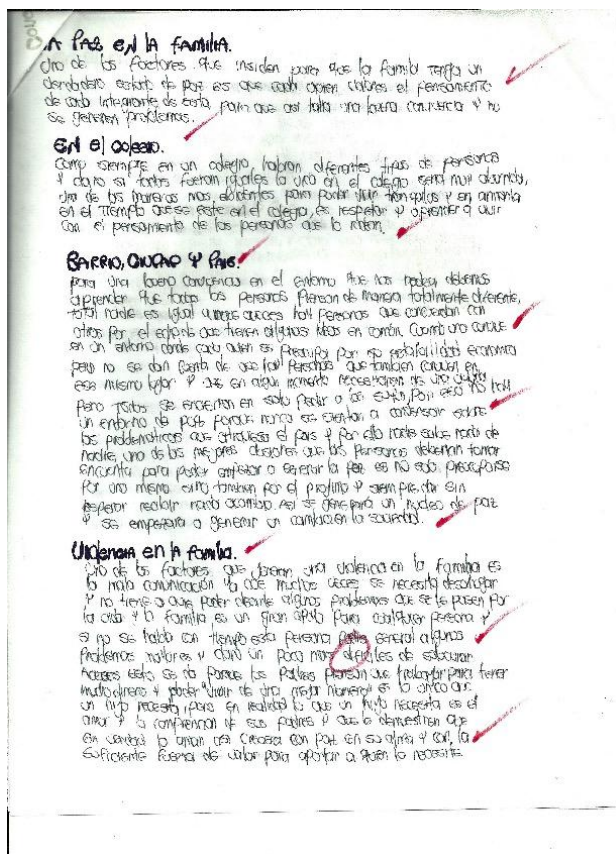 LA PAZ EN LA FAMILIA.
Uno de los factores que insiden para que la familia tenga un
verdadero estado de paz es que cada quien valores el pensamiento
de cada integrante de esta, para que asi halla una buena convivencia y no
se generen problemas.
EN el colegio.
Como siempre en un colegio, habran diferentes tipos de personas
y claro si todos fueran iguales la vida en el colegio seria muy aburrida,
una de las maneras mas para poder vivir tranquilos y en armonia
en el tiempo que se este en el colegio, es respetar y aprender a vivir
con el pensamiento de las personas que lo rodean.
BARRIO, CIUDAD Y PAIS.
para una buena convivencia en el entorno que nos rodea debemos
aprender que todas las personas piensan de manera totalmente diferente,
total nadie es igual aunque aveces hay personas que concuerdan con
otras por el de que tienen algunas ideas en común. Cuando uno convive
en un entorno donde cada quien se preocupa por su estabilidad economica
pero no se dan cuenta de que hay personas que tambien conviven en
ese mismo lugar y que en algun momento necesitaron de una ayuda
Pero todos se encierran en solo pedir a los suyos, Por eso no hay
un entorno de paz porque nunca se sientan a conversar sobre
las problematicas que atraviesa el pais y por ello nadie sabe nada de
nadie, una de las mejores que las personas deberian tomar
encuenta para poder empezar a generar la paz es no solo preocuparse
por uno mismo sino tambien por el projimo y siempre dar sin
esperar recibir nada acambio. Asi se generaria un nucleo de paz
y se empezaria a generar un cambio en la sociedad.
Violencia en la familia.
Uno de los factores que generan una violencia en la familia es
la mala comunicación ya que muchas veces se necesita desahogar
y no tiene a quien poder decirle algunos problemas que se le pasen por
la vida y la familia es un gran apoyo para cualquier persona y
si no se habla con tiempo esta persona podra generar algunos
problemas mayores y claro un poco mas dificiles de solucionar
Aveces esto se da porque los padres piensan que trabajar para tener
mucho dinero y poder "vivir de una mejor manera" es lo unico que
un hijo necesita, pero en realidad lo que un hijo necesita es el
amor y la comprencion de sus padres y que le demuestren que
en verdad lo aman asi crecera con paz en su alma y con la
suficiente fuerza de valor para aportar a quien lo necesite